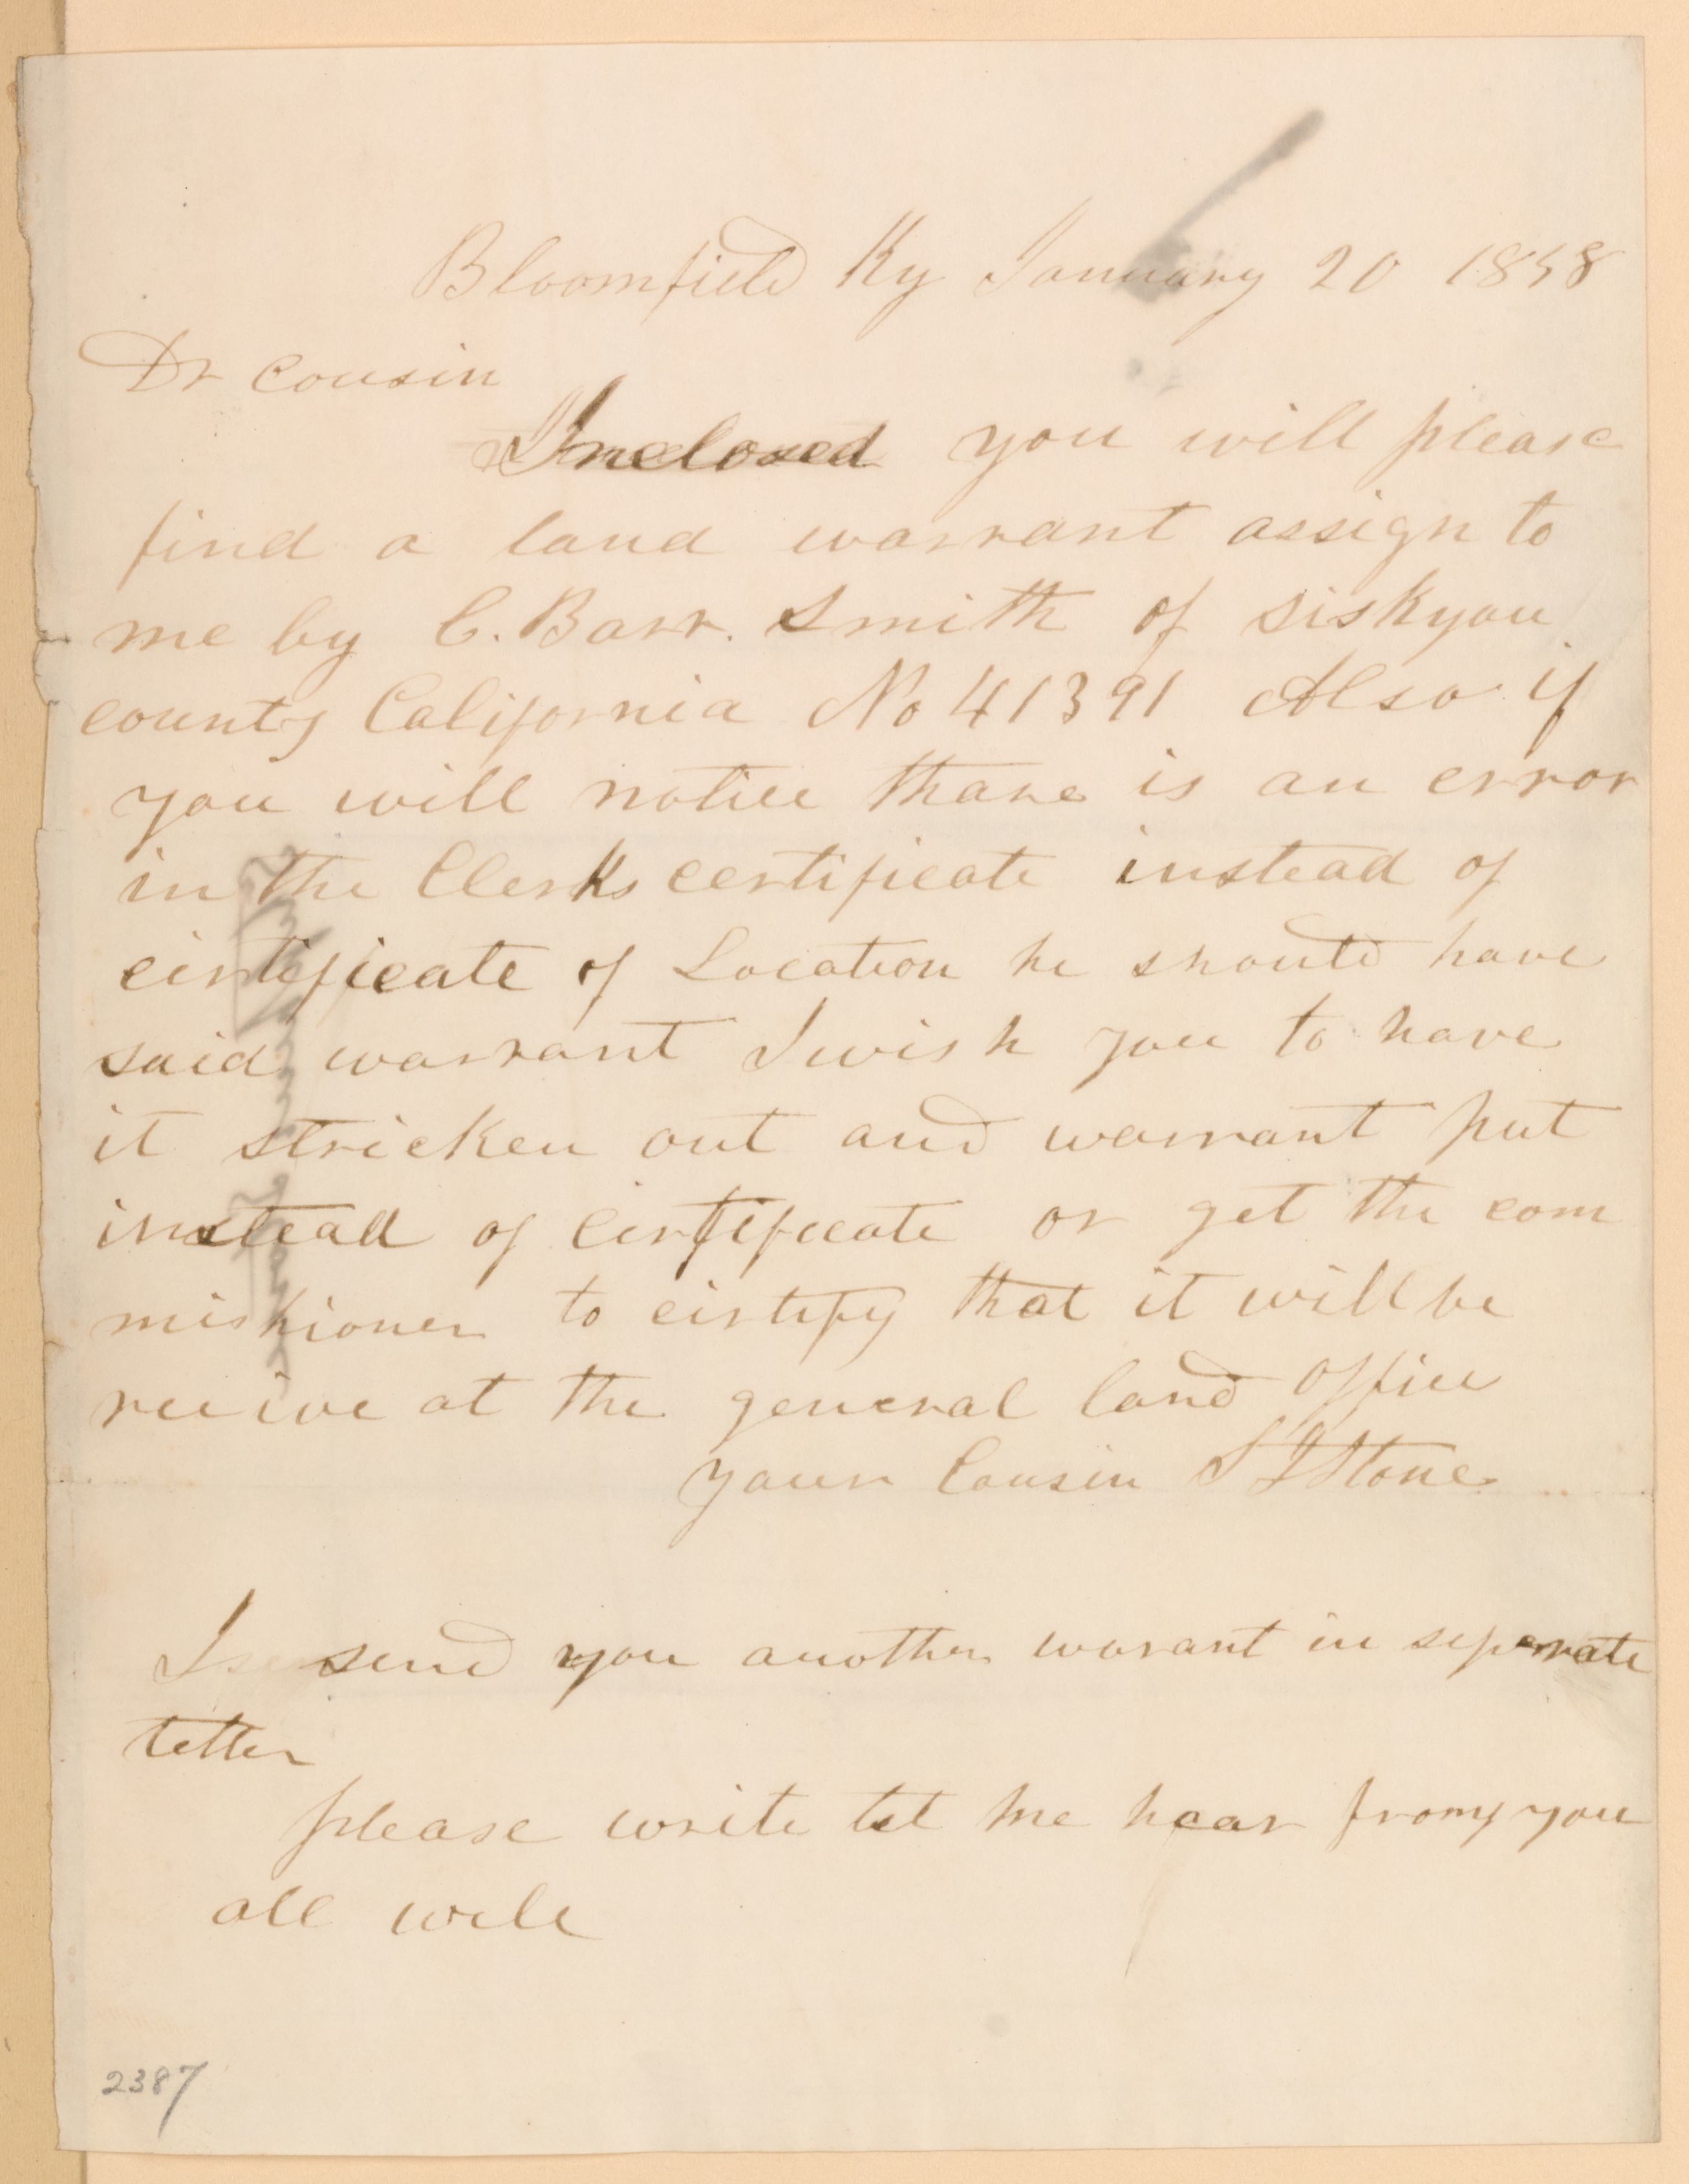 Bloomfield Ky January 20 1858
Dr cousin
Inclosed you will please
find a land warrant assign to
me by C. Barr. Smith of Siskyou
county California No 41391 Also if
you will notice thare is an error
in the Clerks certificate instead of
cirtificate of Location he should have
said warrant I wish you to have
it stricken out and warrant put
instead of Cirtificate or get the com
missioner to cirtify that it will be
recive at the general land office
your Cousin S I Stone
I send you another warant in seperate
letter
please write let me hear from you
all well
2387